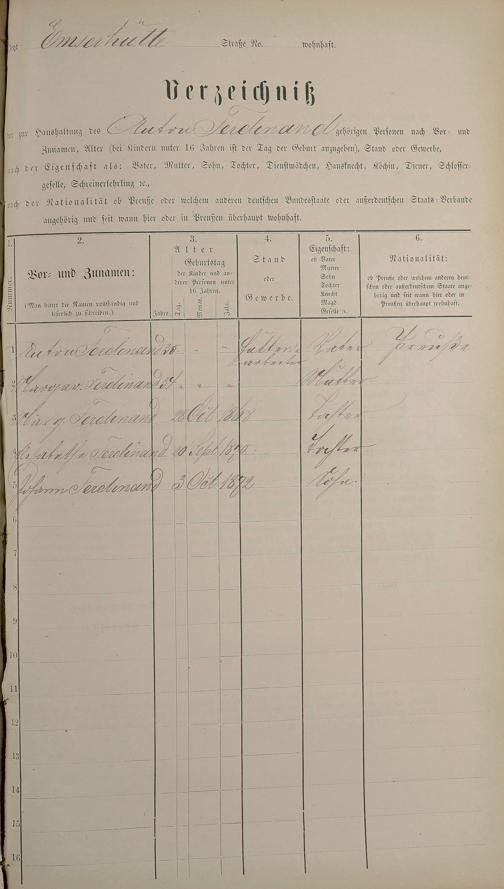 Emserhütte Straße No. wohnhaft.
Verzeichniß
zur Haushaltung des Anton Ferdinand gehörigen Personen nach Vor- und
Zunamen, Alter (bei Kindern unter 16 Jahren ist der Tag der Geburt anzugeben), Stand oder Gewerbe,
nach der Eigenschaft als: Vater, Mutter, Sohn, Tochter, Dienstmädchen, Hausknecht, Köchin, Diener, Schlosser-
geselle, Schreinerlehrling ꝛc.,
nach der Nationalität ob Preuße oder welchem anderen deutschen Bundesstaate oder außerdeutschen Staats-Verbande
angehörig und seit wann hier oder in Preußen überhaupt wohnhaft.
1. 2. 3. 4. 5. 6.
Nummer.
Vor- und Zunamen:
(Man bittet die Namen vollständig und
leserlich zu schreiben.)
Alter
Geburtstag
der Kinder und an-
derer Personen unter
16 Jahren.
Jahre Tag. Monat. Jahr.
Stand
oder
Gewerbe.
Eigenschaft:
ob Vater
Mutter
Sohn
Tochter
Knecht
Magd
Geselle ꝛc.
Nationalität:
ob Preuße oder welchem anderen deut-
schen oder außerdeutschen Staate ange-
hörig und seit wann hier oder in
Preußen überhaupt wohnhaft.
1 Anton Ferdinand 35 - - - Hütten- Vater Preuße
arbeiter
2 Margar. Ferdinand " " " Mutter
3 Marg. Ferdinand 28 Oct 1868 Tochter
4 Elisabetha Ferdinand 20 Sept 1870 Tochter
5 Johann Ferdinand 3 Oct 1872 Sohn
6
7
8
9
10
11
12
13
14
15
16